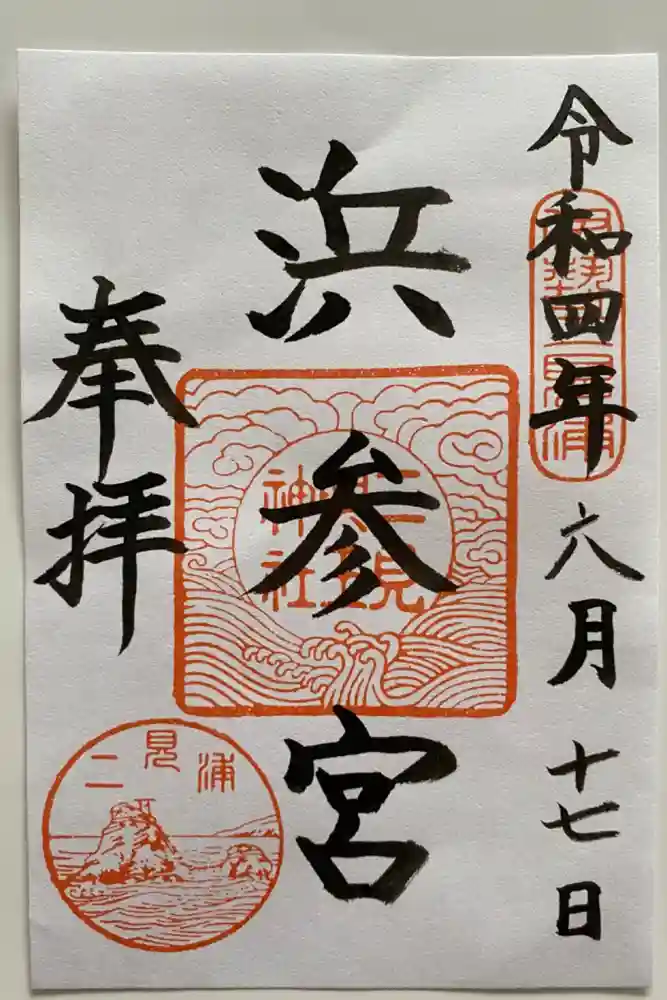 令和四年六月十七日
伊勢二見浦
浜参宮
二見
興玉
神社
奉拝
二見浦